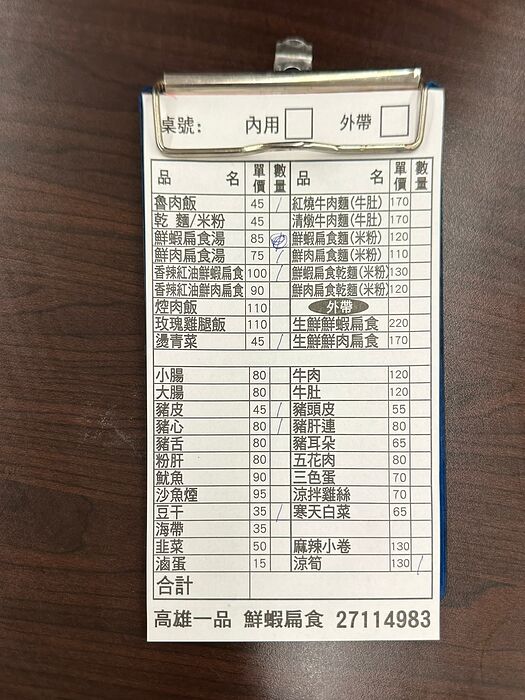 桌號: 內用 □ 外帶 □
品名 單價 數量 品名 單價 數量
魯肉飯 45 / 紅燒牛肉麵(牛肚) 170
乾 麵/米粉 45 清燉牛肉麵(牛肚) 170
鮮蝦扁食湯 85 鮮蝦扁食麵(米粉) 120
鮮肉扁食湯 75 / 鮮肉扁食麵(米粉) 110
香辣紅油鮮蝦扁食 100 / 鮮蝦扁食乾麵(米粉) 130
香辣紅油鮮肉扁食 90 鮮肉扁食乾麵(米粉) 120
焢肉飯 110 外帶
玫瑰雞腿飯 110 生鮮鮮蝦扁食 220
燙青菜 45 / 生鮮鮮肉扁食 170
小腸 80 牛肉 120
大腸 80 牛肚 120
豬皮 45 / 豬頭皮 55
豬心 80 / 豬肝連 80
豬舌 80 豬耳朵 65
粉肝 80 五花肉 80
魷魚 90 三色蛋 70
沙魚煙 95 涼拌雞絲 70
豆干 35 / 寒天白菜 65
海帶 35
韭菜 50 麻辣小卷 130
滷蛋 15 涼筍 130 /
合計
高雄一品 鮮蝦扁食 27114983